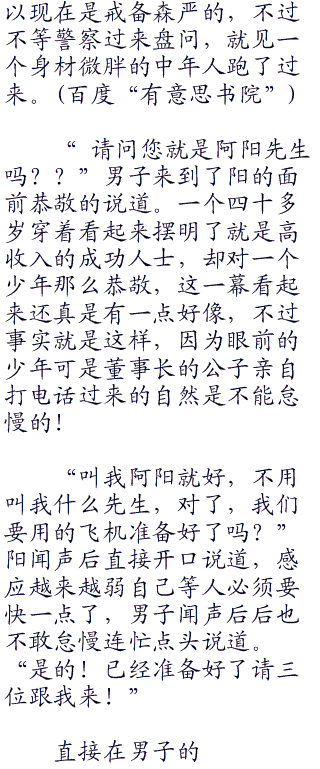 以现在是戒备森严的，不过
不等警察过来盘问，就见一
个身材微胖的中年人跑了过
来。(百度“有意思书院”)
“ 请问您就是阿阳先生
吗？？”男子来到了阳的面
前恭敬的说道。一个四十多
岁穿着看起来摆明了就是高
收入的成功人士，却对一个
少年那么恭敬，这一幕看起
来还真是有一点好像，不过
事实就是这样，因为眼前的
少年可是董事长的公子亲自
打电话过来的自然是不能怠
慢的！
“叫我阿阳就好，不用
叫我什么先生，对了，我们
要用的飞机准备好了吗？”
阳闻声后直接开口说道，感
应越来越弱自己等人必须要
快一点了，男子闻声后后也
不敢怠慢连忙点头说道。
“是的！已经准备好了请三
位跟我来！”
直接在男子的